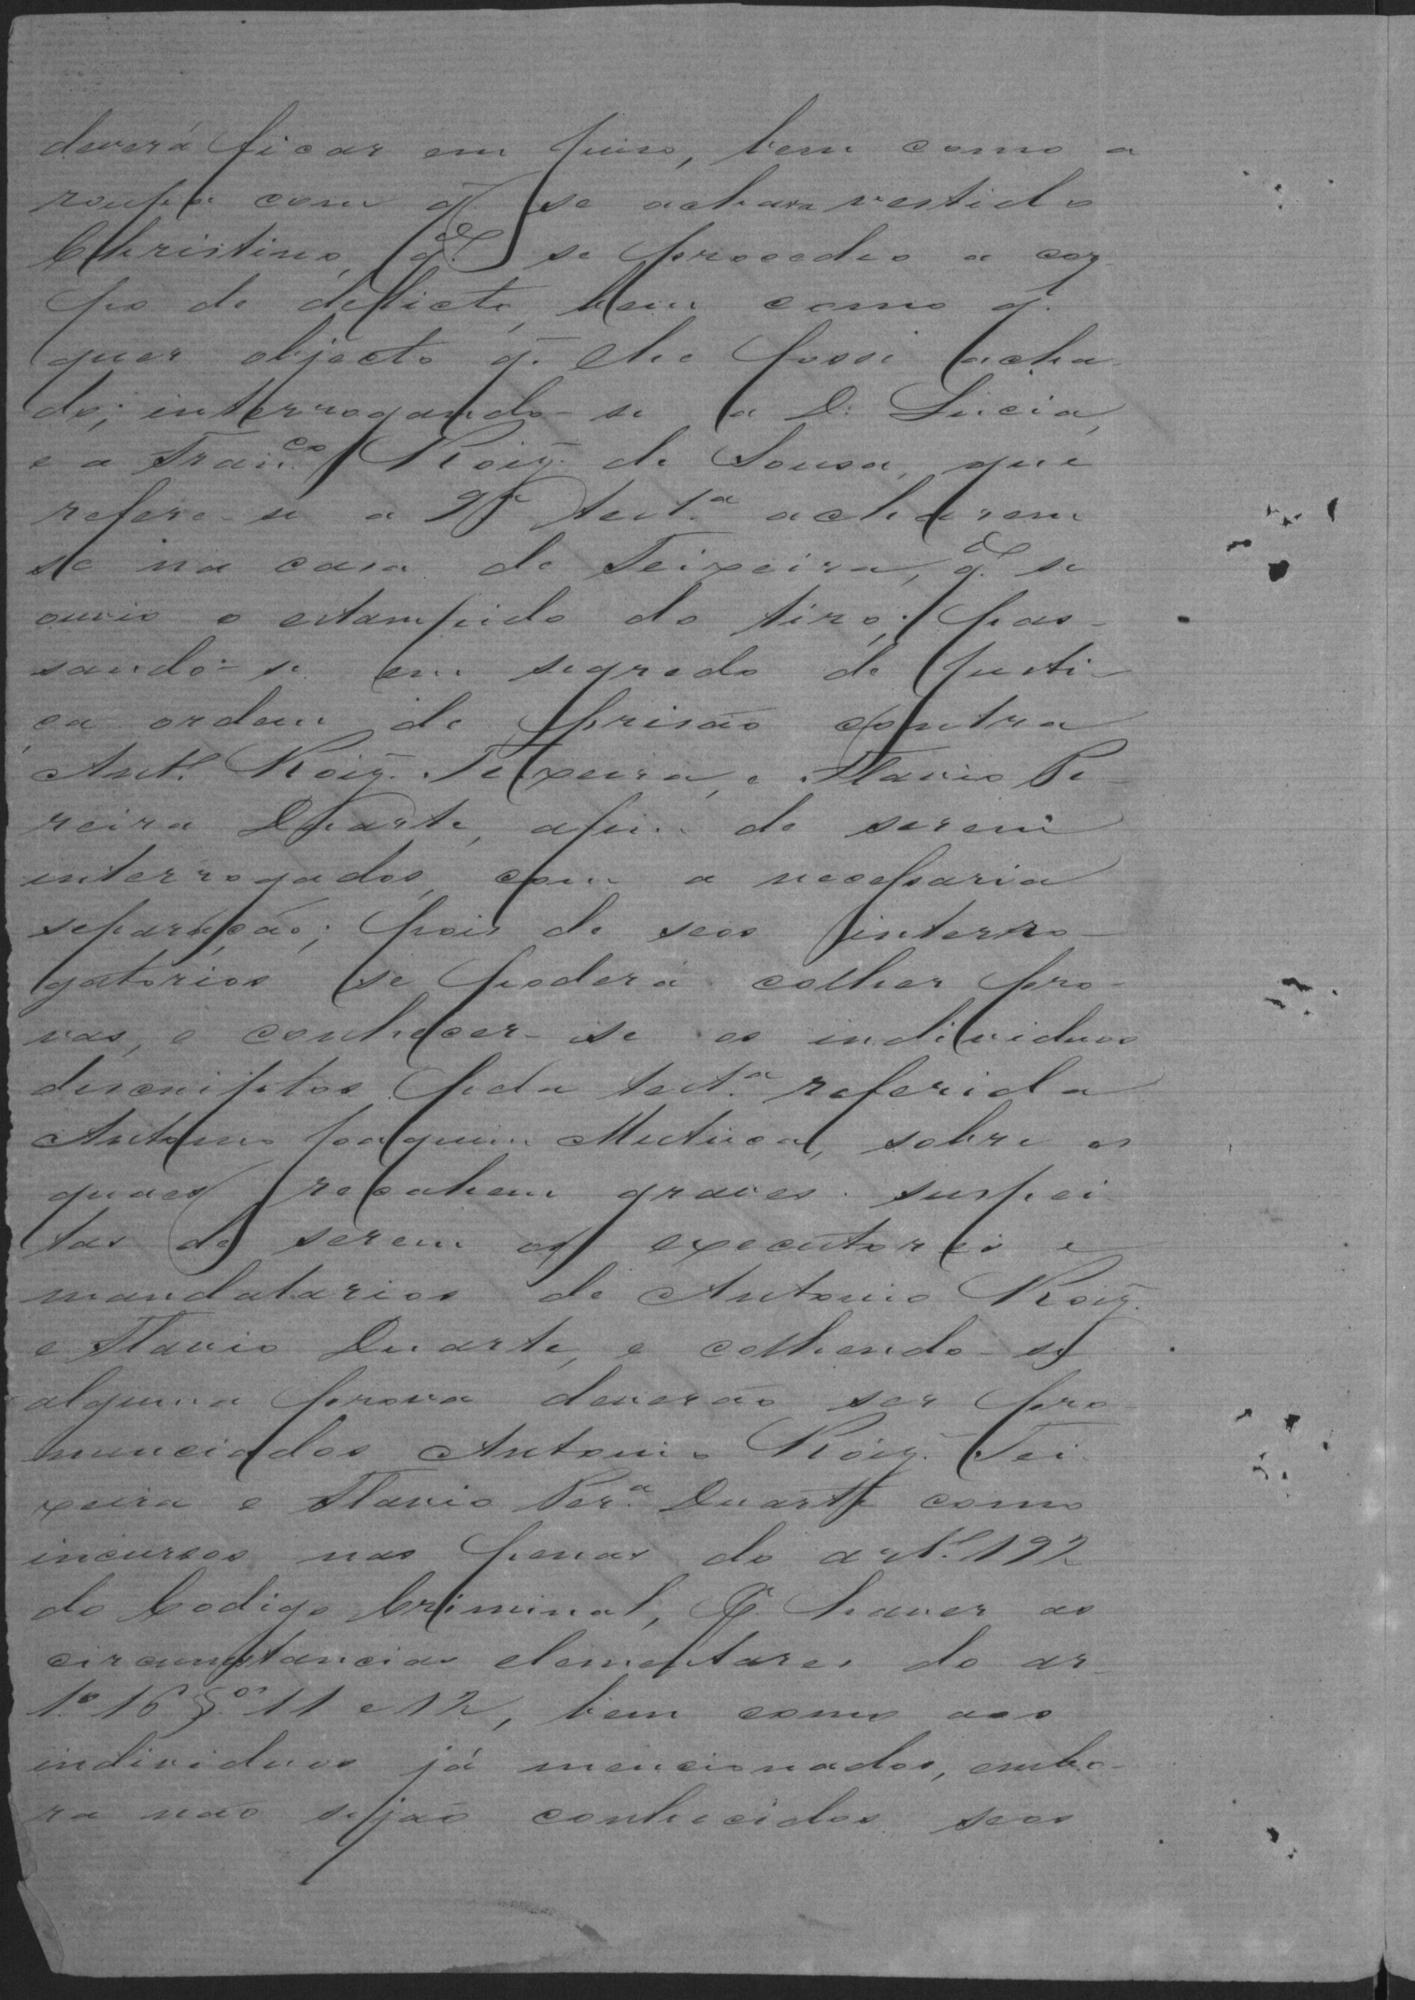 deverá ficar em juiso, bem como a
roupa com q. se achava vestido
Christino, q.do se procedeo a cor
po de delicto, bem como q.
quer objecto q. lhe fosse acha-
do; interrogando-se a D. Lucia,
e a Fran.co Roiz. de Sousa, que
refere-se a 9ª test.a acharem
se na casa de Teixeira, q.do se
ouvio o estampido do tiro; pas-
sando-se em segredo de justi-
ça ordem de prisão contra
Ant.º Roiz. Teixeira, e Flavio Pe-
reira Duarte, afim de serem
interrogados, com a necessaria
separação; pois de seos interro-
gatorios se poderá colher pro-
vas, e conhecer-se os individuos
descriptos pela test.a referida
Antonio Joaquim Mutuca, sobre os
quaes recahem graves suspei
tas de serem os executores e
mandatarios de Antonio Roiz.
e Flavio Duarte, e colhendo-se
alguma prova deverão ser pro
nunciados Antonio Roiz. Tei
xeira e Flavio Per.a Duarte como
incursos nas penas do art.º 192
do Codigo Criminal, p. haver as
circunstancias elementares do ar-
t.º 16 §.os 11 e 12, bem como aos
individuos já mencionados, embo-
ra não sejão conhecidos seos